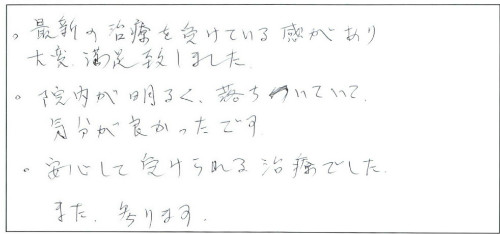 。最新の治療を受けている感があり
大変満足致しました。
。院内が明るく、落ちついていて、
気分が良かったです
。安心して受けられる治療でした。
また、参ります。